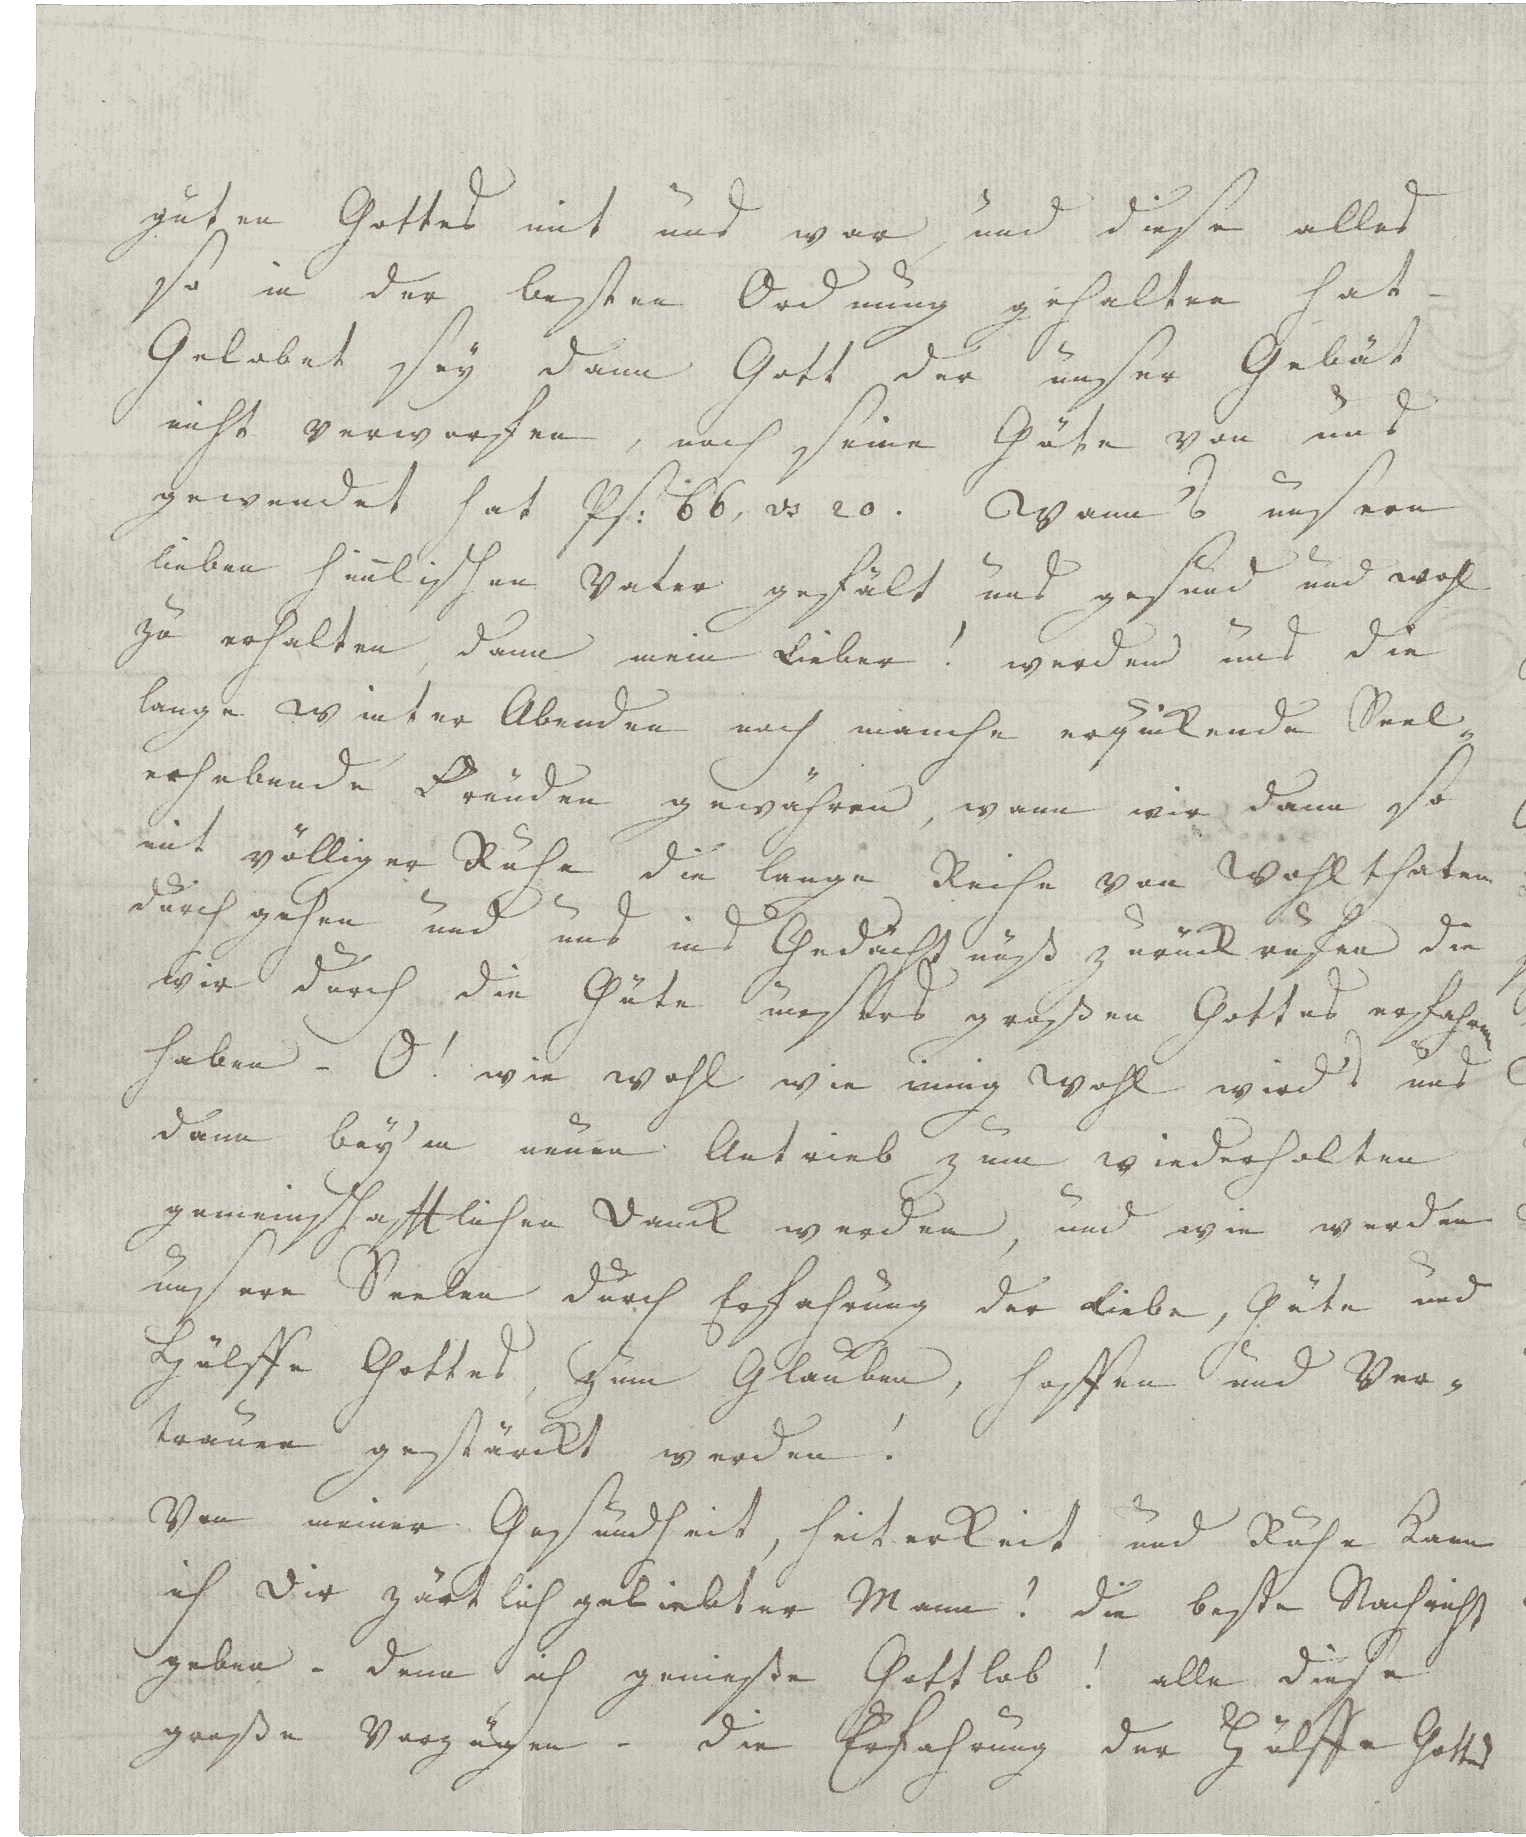 guten Gottes mit uns war, und diese alles
so in der besten Ordnung gehalten hat -
Gelobet sey dann Gott der unser Gebät
nicht verworfen, noch seine Güte von uns
gewendet hat Ps: 66, vs 20. Wann's unserm
lieben himlischen Vater gefält uns gesund und wohl
zu erhalten, dann mein Lieber! werden uns die
lange Winter Abenden noch manche erquikende Seel„
erhebende Freuden gewähren, wann wir dann so
mit völliger Ruhe die lange Reihe von Wohlthaten
durchgehen und uns ins Gedächtnüß zurückrufen die
wir durch die Güte unsers großen Gottes erfahren
haben - O! wie wohl wie innig wohl wird's uns
dann bey'm neuen Antrieb zum wiederholten
gemeinschafftlichen Danck werden, und wie werden
unsere Seelen durch Erfahrung der Liebe, Güte und
Hülffe Gottes, zum Glauben, hoffen und Ver„
trauen gestärckt werden!
Von meiner Gesundheit, heiterkeit und Ruhe kann
ich Dir zärtlich geliebter Mann! die beste Nachricht
geben - denn ich genieße Gottlob! alle diese
große Vorzügen - die Erfahrung der Hülffe Gottes